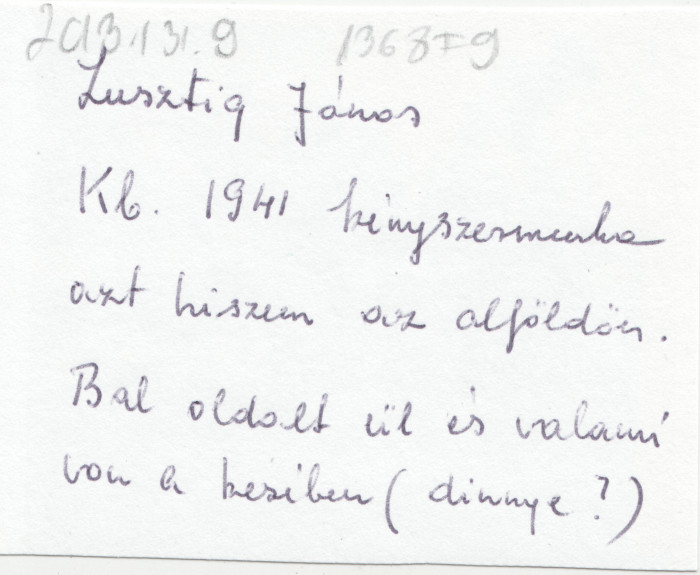 2013.131.9 1368F9
Lusztig János
Kb. 1941 kényszermunka
azt hiszem az alföldön.
Bal oldalt ül és valami
van a kezében ( dinnye ? )